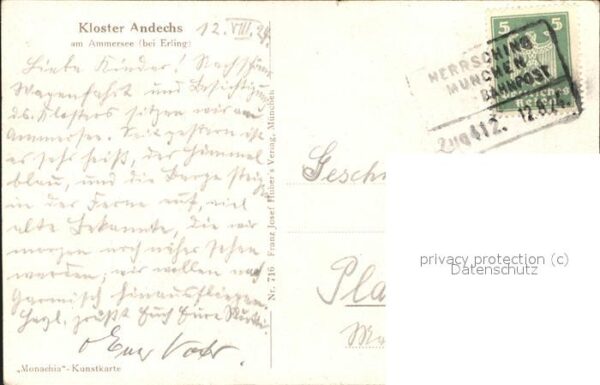 Kloster Andechs
am Ammersee (bei Erling)
12. VIII. 24.
Liebe Kinder! Nach schöner
Wagenfahrt und Besichtigung
d. Klosters sitzen wir am
Ammersee. Seit gestern ist
es sehr heiß, der Himmel
blau, und die Berge steigen
in der Ferne auf, viel
alte Bekannte, die wir
morgen noch näher sehen
werden; wir wollen nach
Garmisch hinausfliegen.
Herzl. grüßt Euch Eure Mutti
Euer Vater
„Monachia"-Kunstkarte
Nr. 716 Franz Josef Huber's Verlag, München
5 5
Deutsches Reich
HERRSCHING
MÜNCHEN
BAHNPOST
Zug 412. 12.8.24.
Gesch
Pla
privacy protection (c)
Datenschutz